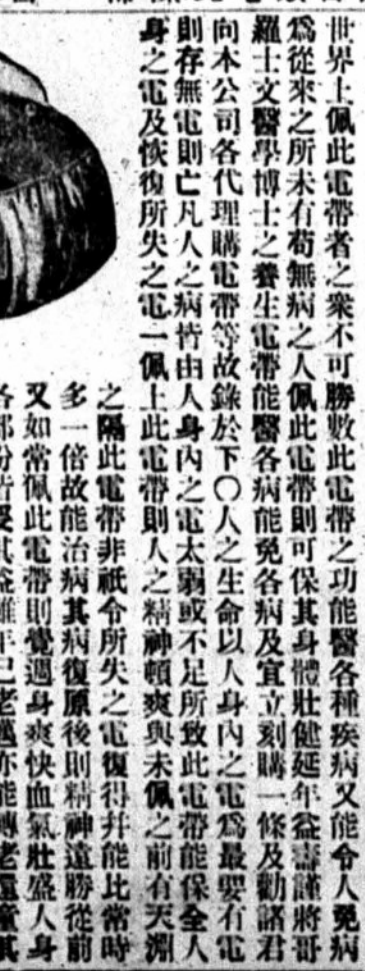 世界上佩此電帶者之衆不可勝數此電帶之功能醫各種疾病又能令人免病
爲從來之所未有苟無病之人佩此電帶則可保其身體壯健延年益壽謹將哥
羅士文醫學博士之養生電帶能醫各病能免各病及宜立刻購一條及勸諸君
向本公司各代理購電帶等故錄於下〇人之生命以人身內之電爲最要有電
則存無電則亡凡人之病皆由人身內之電太弱或不足所致此電帶能保全人
身之電及恢復所失之電一佩上此電帶則人之精神頓爽與未佩之前有天淵
之隔此電帶非祇令所失之電復得幷能比常時
多一倍故能治病其病復原後則精神遠勝從前
又如常佩此電帶則覺週身爽快血氣壯盛人身
各部份皆受其益雖年已老邁亦能轉老還童其